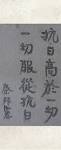 抗日高於一切
一切服從抗日